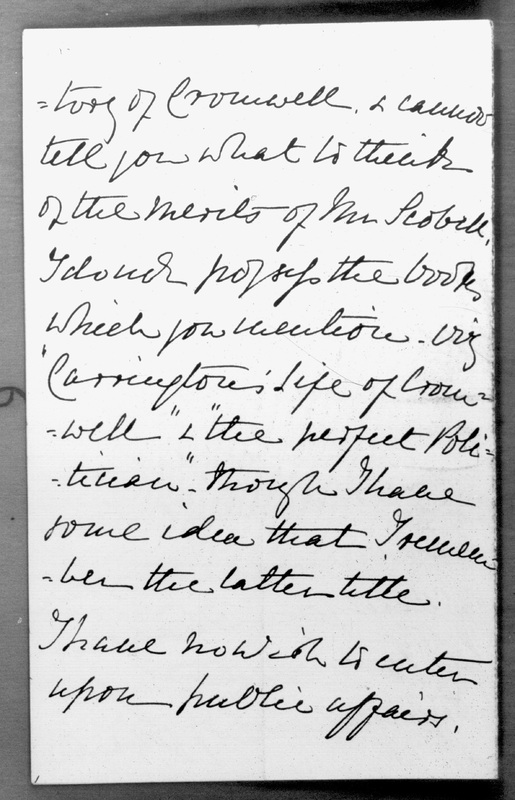 =tory of Cromwell. & cannot
tell you what to think
of the merits of Mr Scobell.
I do not possess the books
which you mention - viz
"Carrington's Life of Crom=
=well" & "the perfect Poli-
-tician" - though I have
some idea that I remem
-ber the latter title.
I have no wish to enter
upon public affairs.